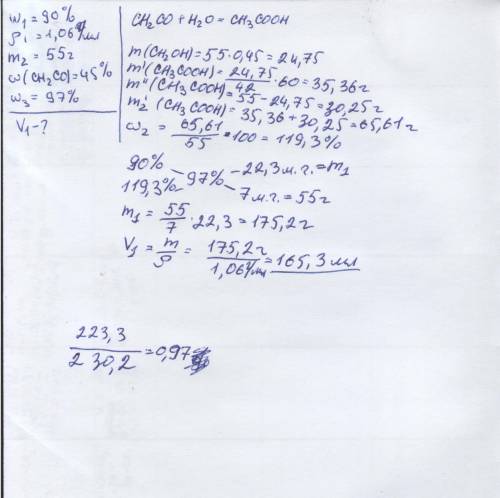 ω₁ = 90%
ρ₁ = 1,06 г/мл
m₂ = 55г
ω(CH₂CO) = 45%
ω₃ = 97%
V₁ - ?
CH₂CO + H₂O = CH₃COOH
m(CH₂OH) = 55·0,45 = 24,75
m'(CH₃COOH) = 24,75/42 · 60 = 35,36 г
m''(CH₃COOH) = 55 - 24,75 = 30,25 г
m₂(CH₃COOH) = 35,36 + 30,25 = 65,61 г
ω₂ = 65,61/55 · 100 = 119,3%
90% - 22,3 м.г. = m₁
97%
119,3% 7 м.г. = 55г
m₁ = 55/7 · 22,3 = 175,2 г
V₁ = m/ρ = 175,2г/1,06г/мл = 165,3 мл
223,3/230,2 = 0,97